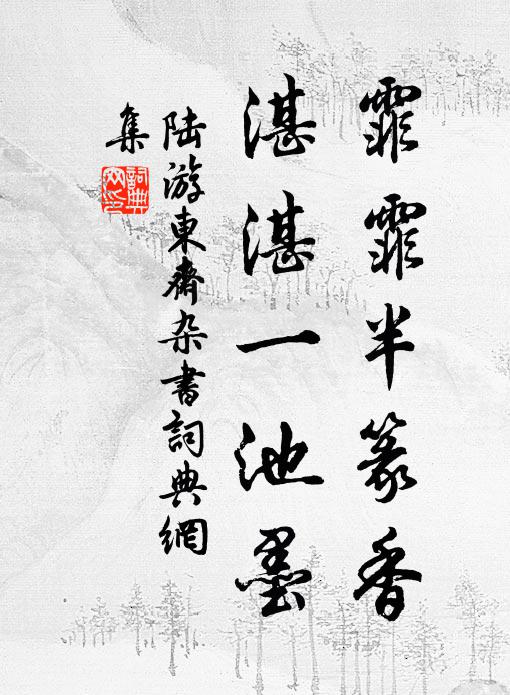 霏霏半篆香
湛湛一池墨
陸游東齋杂書詞典網
集
詞典網